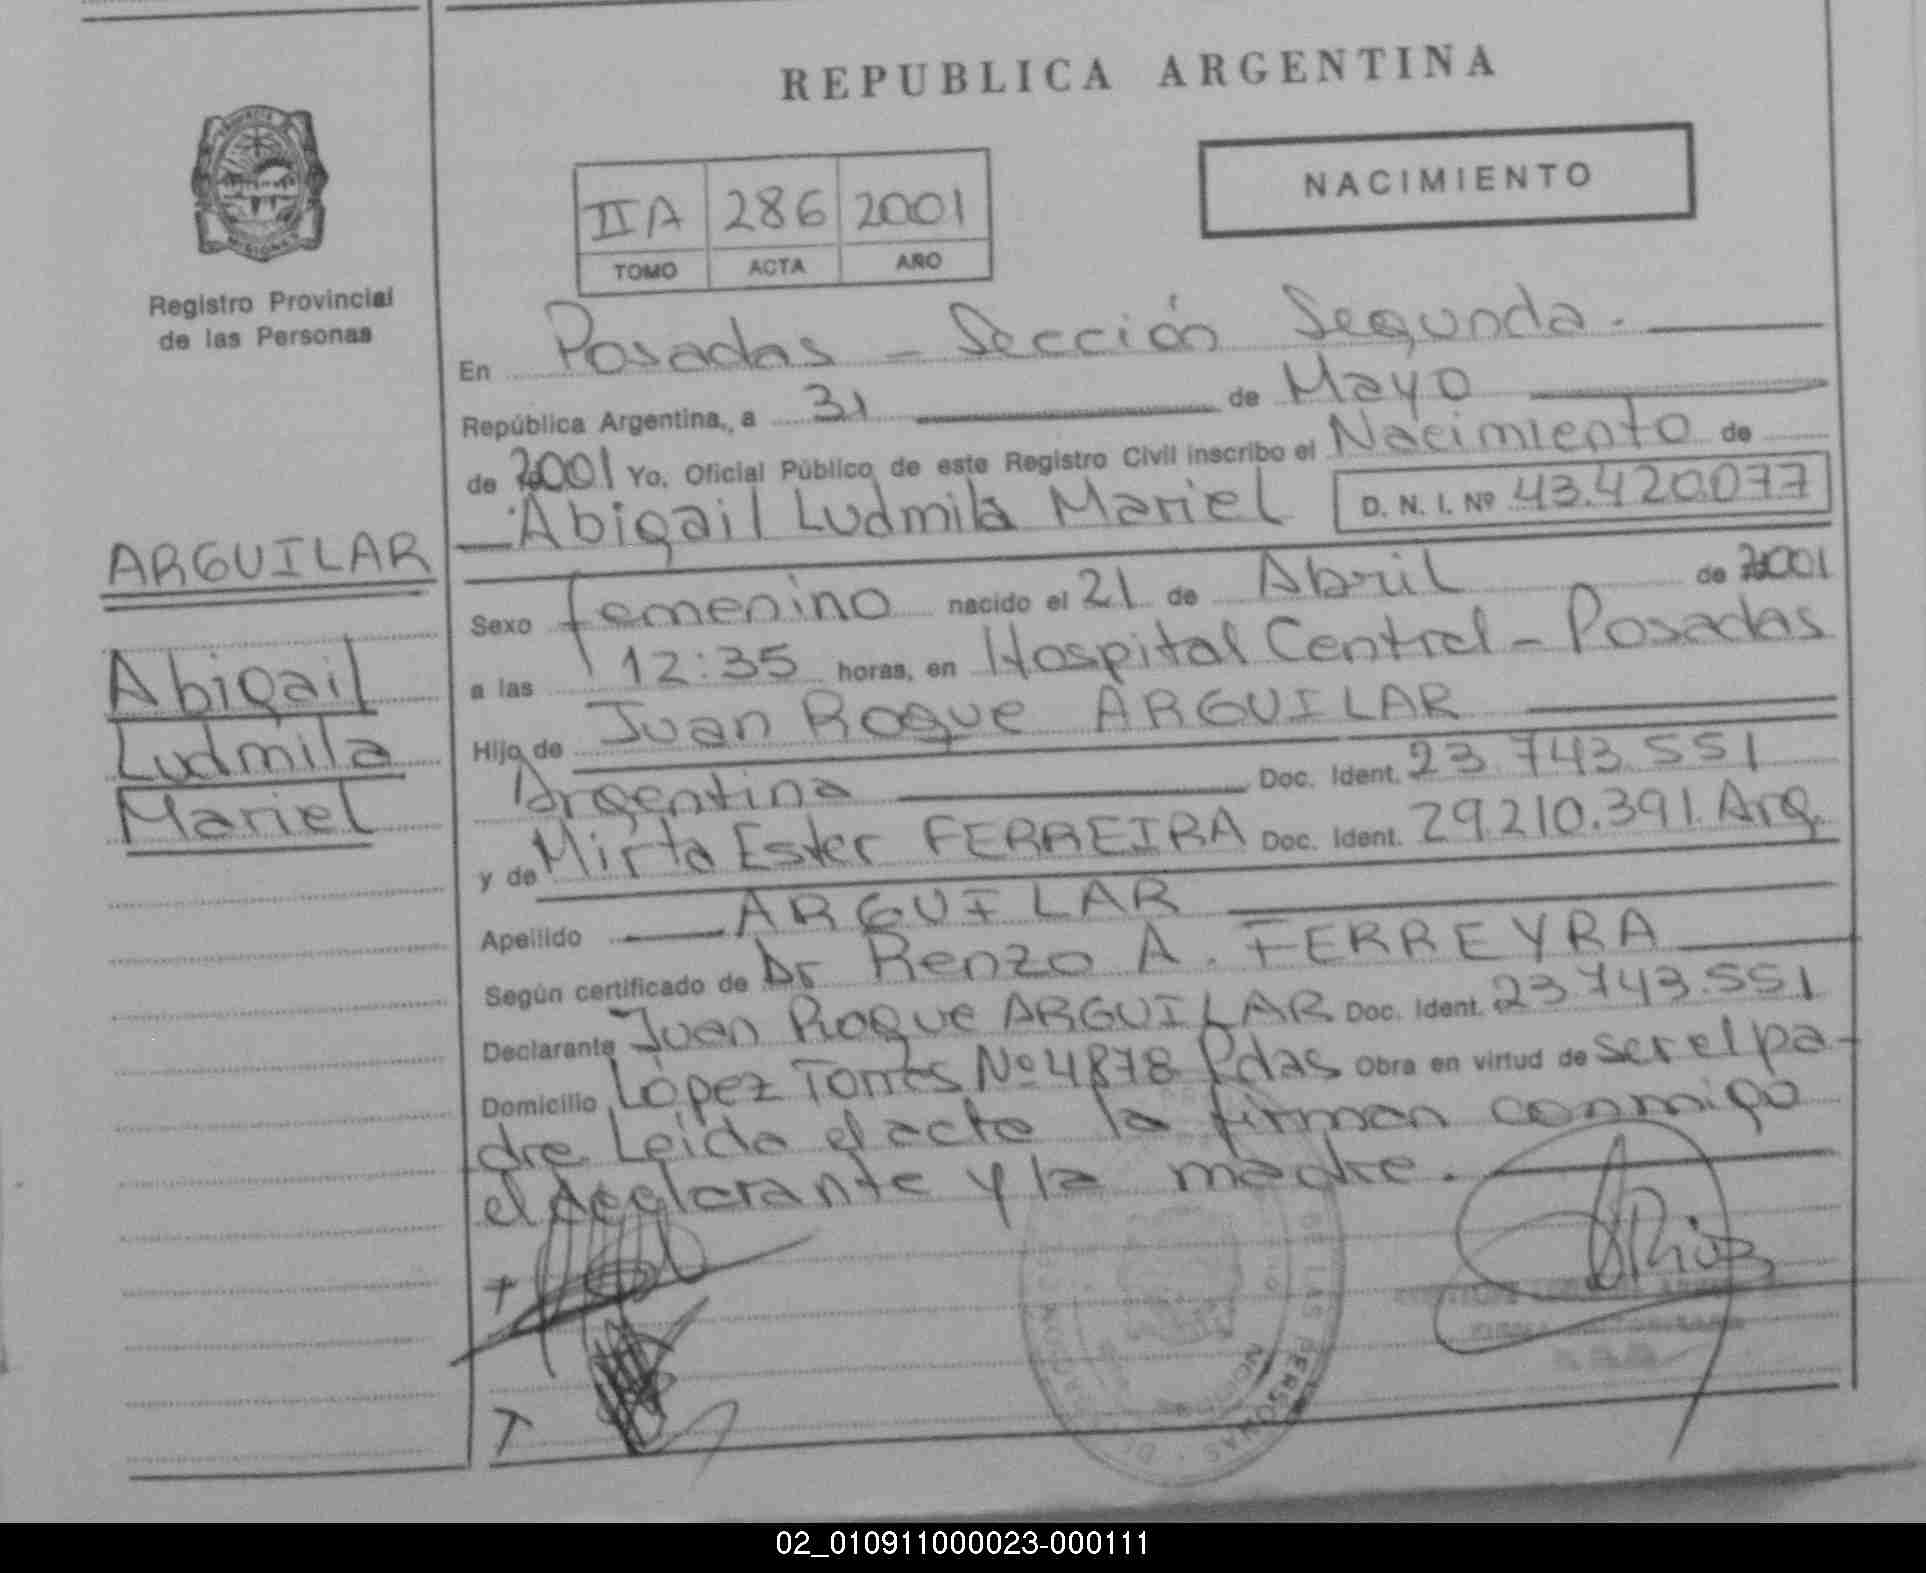 REPUBLICA ARGENTINA
NACIMIENTO
IIA 286 2001
TOMO ACTA AÑO
PROVINCIA
MISIONES
Registro Provincial
de las Personas
En Posadas - Sección Segunda.
República Argentina, a 31 de Mayo
de 2001 Yo, Oficial Público de este Registro Civil inscribo el Nacimiento de
Abigail Ludmila Mariel D. N. I. Nº 43.420.077
ARGUILAR
Abigail
Ludmila
Mariel
Sexo femenino nacido el 21 de Abril de 2001
a las 12:35 horas, en Hospital Central - Posadas
Hijo de Juan Roque ARGUILAR
Argentina Doc. Ident. 23.743.551
y de Mirta Ester FERREIRA Doc. Ident. 29.210.391. Arg.
Apellido ARGUILAR
Según certificado de Dr Renzo A. FERREYRA
Declarante Juan Roque ARGUILAR Doc. Ident. 23.743.551
Domicilio López Torres Nº 4878 Pdas Obra en virtud de ser el pa-
dre. Leida el acta la firman conmigo
el declarante y la madre.
DE LAS PERSONAS
02_010911000023-000111